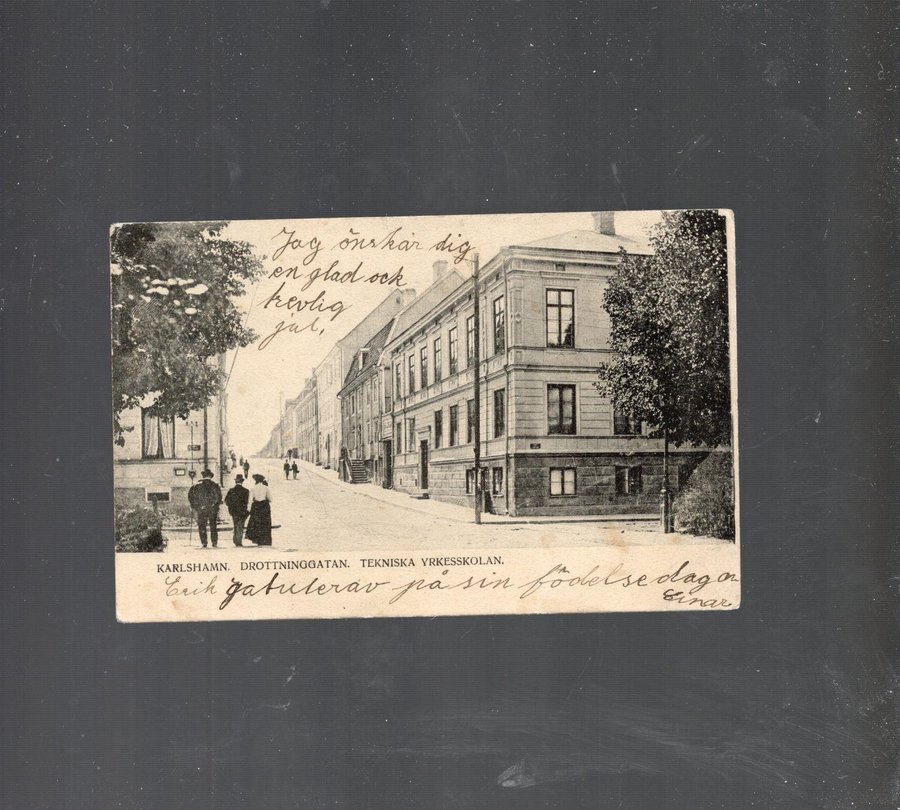 Jag önskar dig
en glad ock
trevlig
jul,
KARLSHAMN. DROTTNINGGATAN. TEKNISKA YRKESSKOLAN.
Erik gatulerav på sin födelsedag
Einar